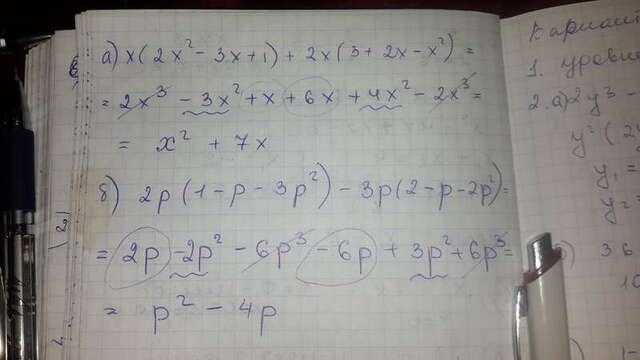 а) x(2x² - 3x + 1) + 2x(3 + 2x - x²) =
= 2x³ - 3x² + x + 6x + 4x² - 2x³ =
= x² + 7x
б) 2p(1 - p - 3p²) - 3p(2 - p - 2p²) =
= 2p - 2p² - 6p³ - 6p + 3p² + 6p³ =
= p² - 4p
Вариан
1. уровн
2. а) 2y³ -
y² (2
y₁ =
y₂ =
) 36
10